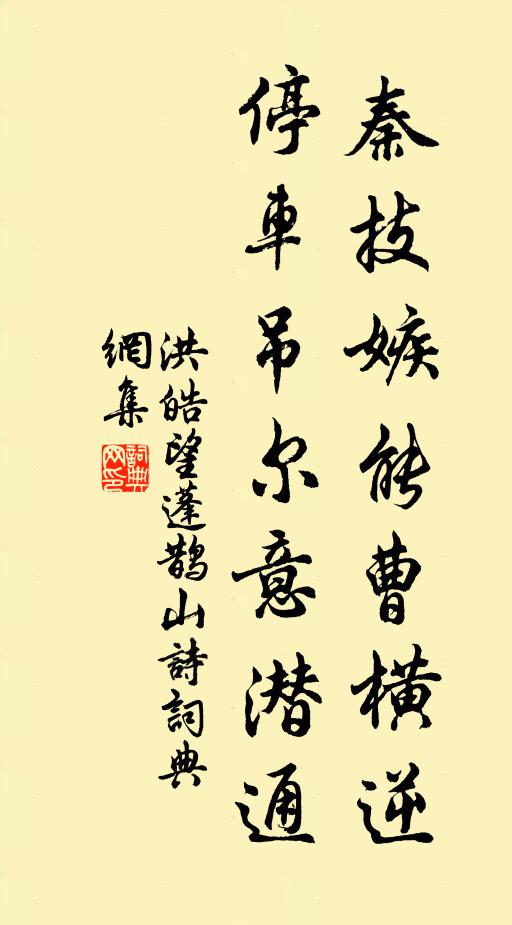 秦技嫉能曹橫逆
停車吊尔意潜通
洪皓望蓬鵲山詩詞典
網集
詞典
网印